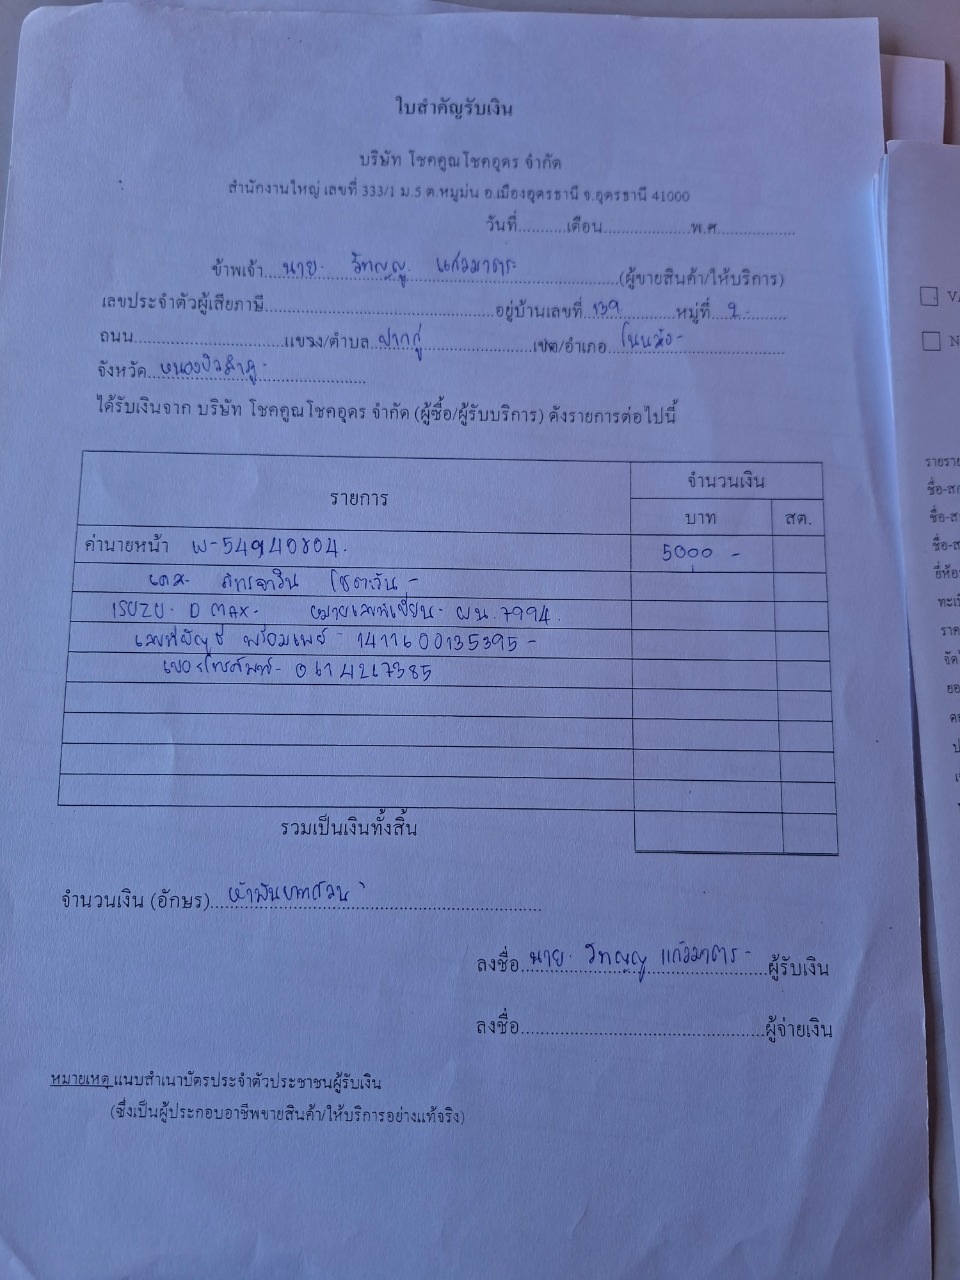 ใบสำคัญรับเงิน
บริษัท โชคคูณโชคอุดร จำกัด
สำนักงานใหญ่ เลขที่ 333/1 ม.5 ต.หมูม่น อ.เมืองอุดรธานี จ.อุดรธานี 41000
วันที่...........เดือน....................พ.ศ..................
ข้าพเจ้า นาย วิทญญู แก้วมาตร (ผู้ขายสินค้า/ให้บริการ)
เลขประจำตัวผู้เสียภาษี..............................อยู่บ้านเลขที่ 139 หมู่ที่ 2
ถนน..............................แขวง/ตำบล ปากกู่ เขต/อำเภอ โนนสัง
จังหวัด หนองบัวลำภู
ได้รับเงินจาก บริษัท โชคคูณโชคอุดร จำกัด (ผู้ซื้อ/ผู้รับบริการ) ดังรายการต่อไปนี้
รายการ จำนวนเงิน
บาท สต.
ค่านายหน้า W-54940804. 5000 -
เคส ภัทรจาริน โชตะวัน -
ISUZU - D MAX - หมายเลขทะเบียน - ผน. 7994.
เลขที่บัญชี พร้อมเพย์ - 1411600135395 -
เบอร์โทรศัพท์ - 0614267385
รวมเป็นเงินทั้งสิ้น
จำนวนเงิน (อักษร) ห้าพันบาทถ้วน
ลงชื่อ นาย วิทญญู แก้วมาตร - ผู้รับเงิน
ลงชื่อ........................................ผู้จ่ายเงิน
หมายเหตุ แนบสำเนาบัตรประจำตัวประชาชนผู้รับเงิน
(ซึ่งเป็นผู้ประกอบอาชีพขายสินค้า/ให้บริการอย่างแท้จริง)